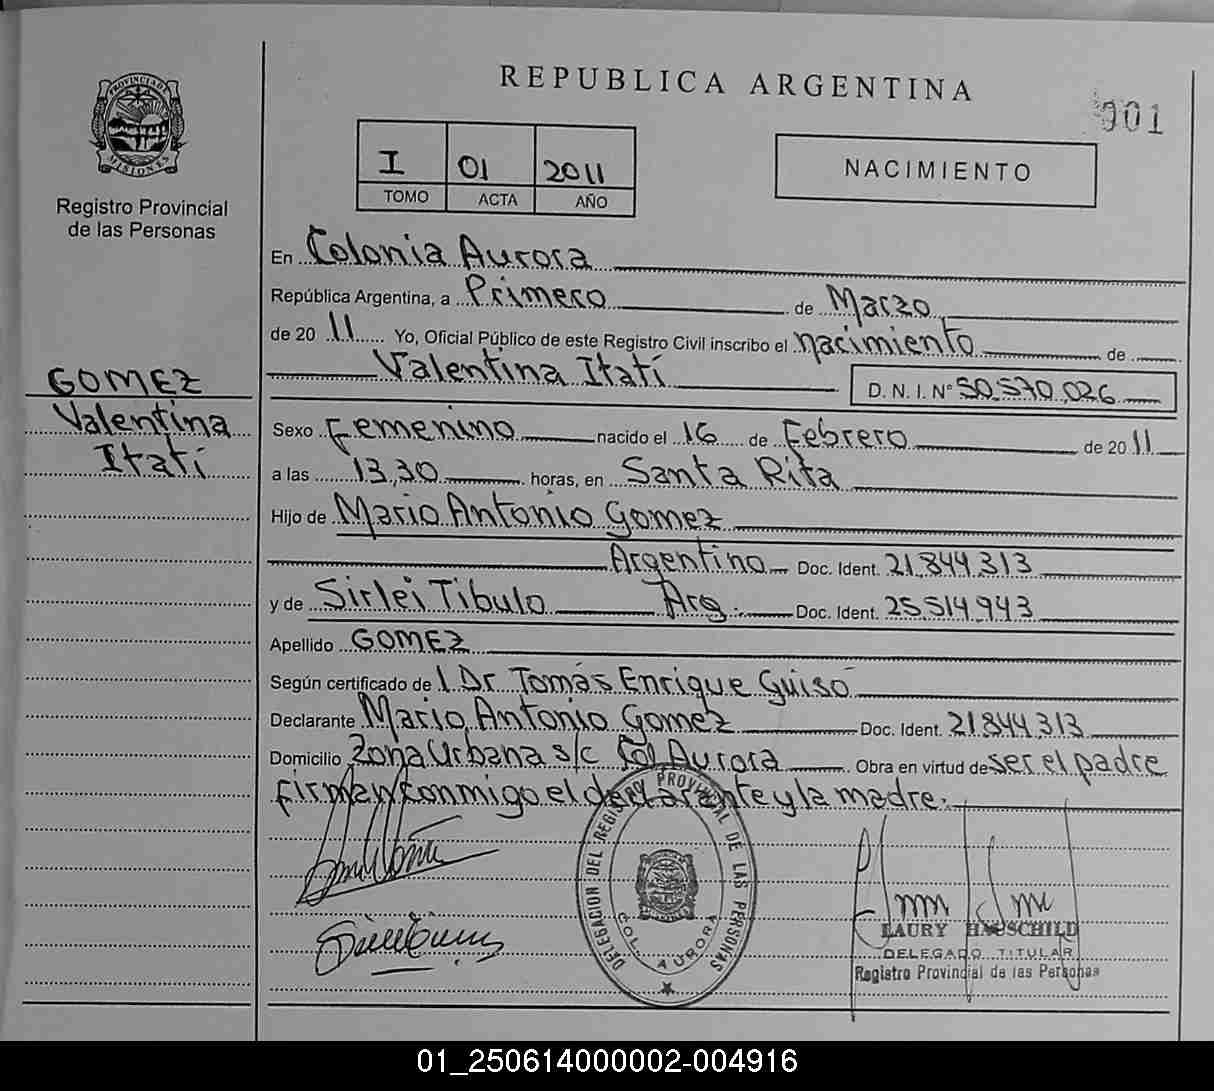 REPUBLICA ARGENTINA
001
PROVINCIA DE
MISIONES
Registro Provincial
de las Personas
I 01 2011
TOMO ACTA AÑO
NACIMIENTO
En Colonia Aurora
República Argentina, a Primero de Marzo
de 2011 Yo, Oficial Público de este Registro Civil inscribo el nacimiento de
Valentina Itatí D. N. I. N° 50.570.026
GOMEZ
Valentina
Itatí
Sexo Femenino nacido el 16 de Febrero de 2011
a las 13,30 horas, en Santa Rita
Hijo de Mario Antonio Gomez
Argentino Doc. Ident. 21.844.313
y de Sirlei Tibulo Arg. Doc. Ident. 25.514.943
Apellido GOMEZ
Según certificado de l Dr Tomás Enrique Guisó
Declarante Mario Antonio Gomez Doc. Ident. 21.844.313
Domicilio Zona Urbana s/c Col Aurora Obra en virtud de ser el padre
firman conmigo el declarante y la madre.
DELEGACION DEL REGISTRO PROVINCIAL DE LAS PERSONAS
COL. AURORA
LAURY HAUSCHILD
DELEGADO TITULAR
Registro Provincial de las Personas
01_250614000002-004916